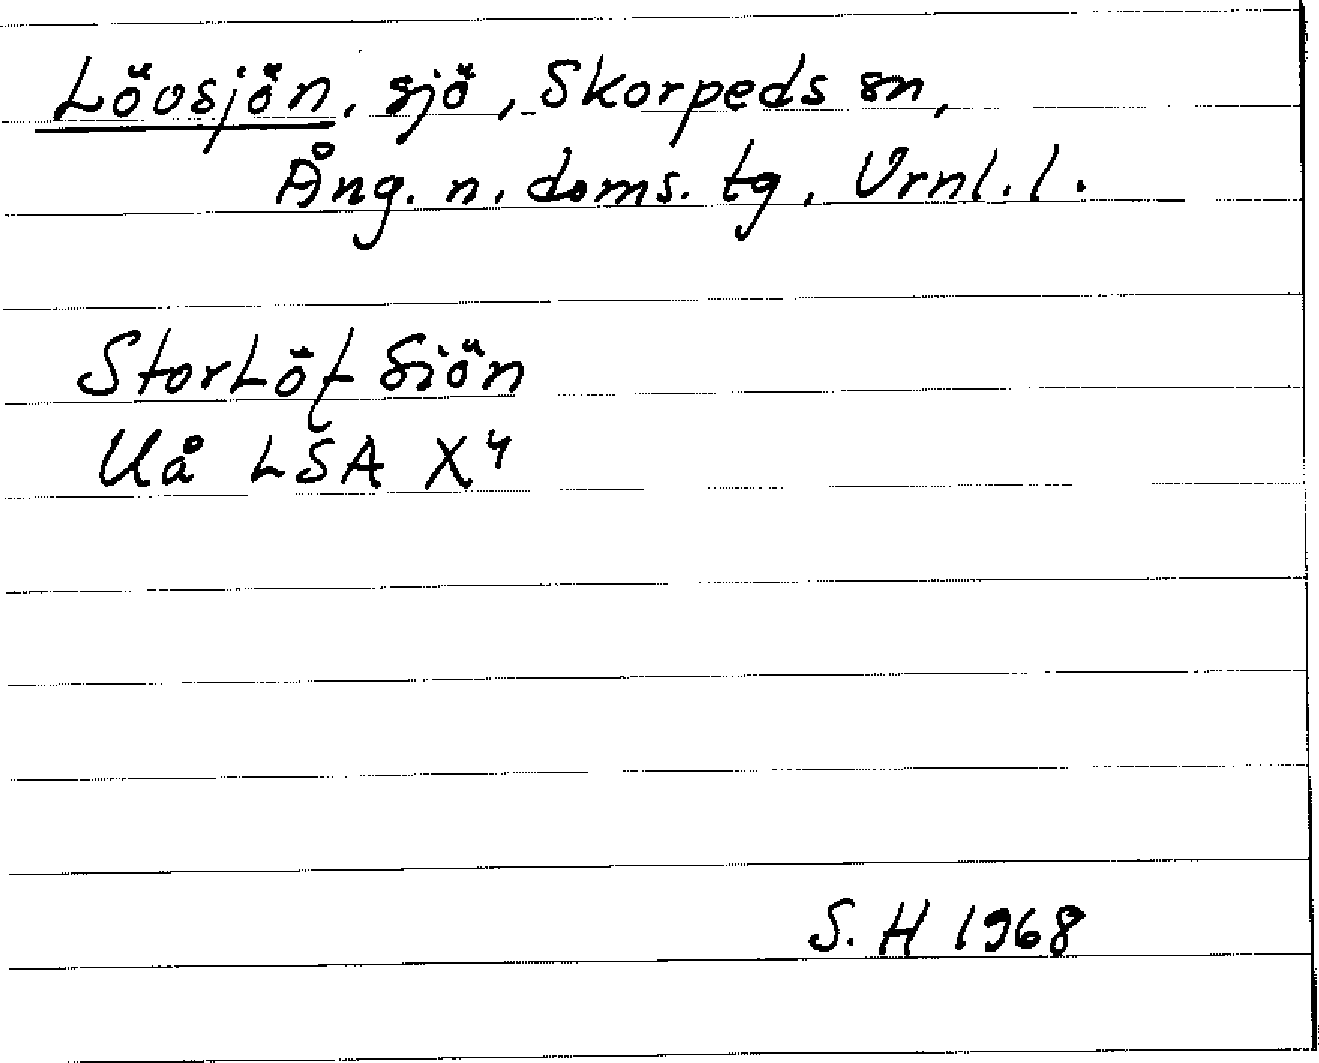 Lövsjön, sjö, Skorpeds sn,
Ång. n. doms. tg, Vrnl. l.
StorLöf Siön
Uå LSA X4
S. H 1968